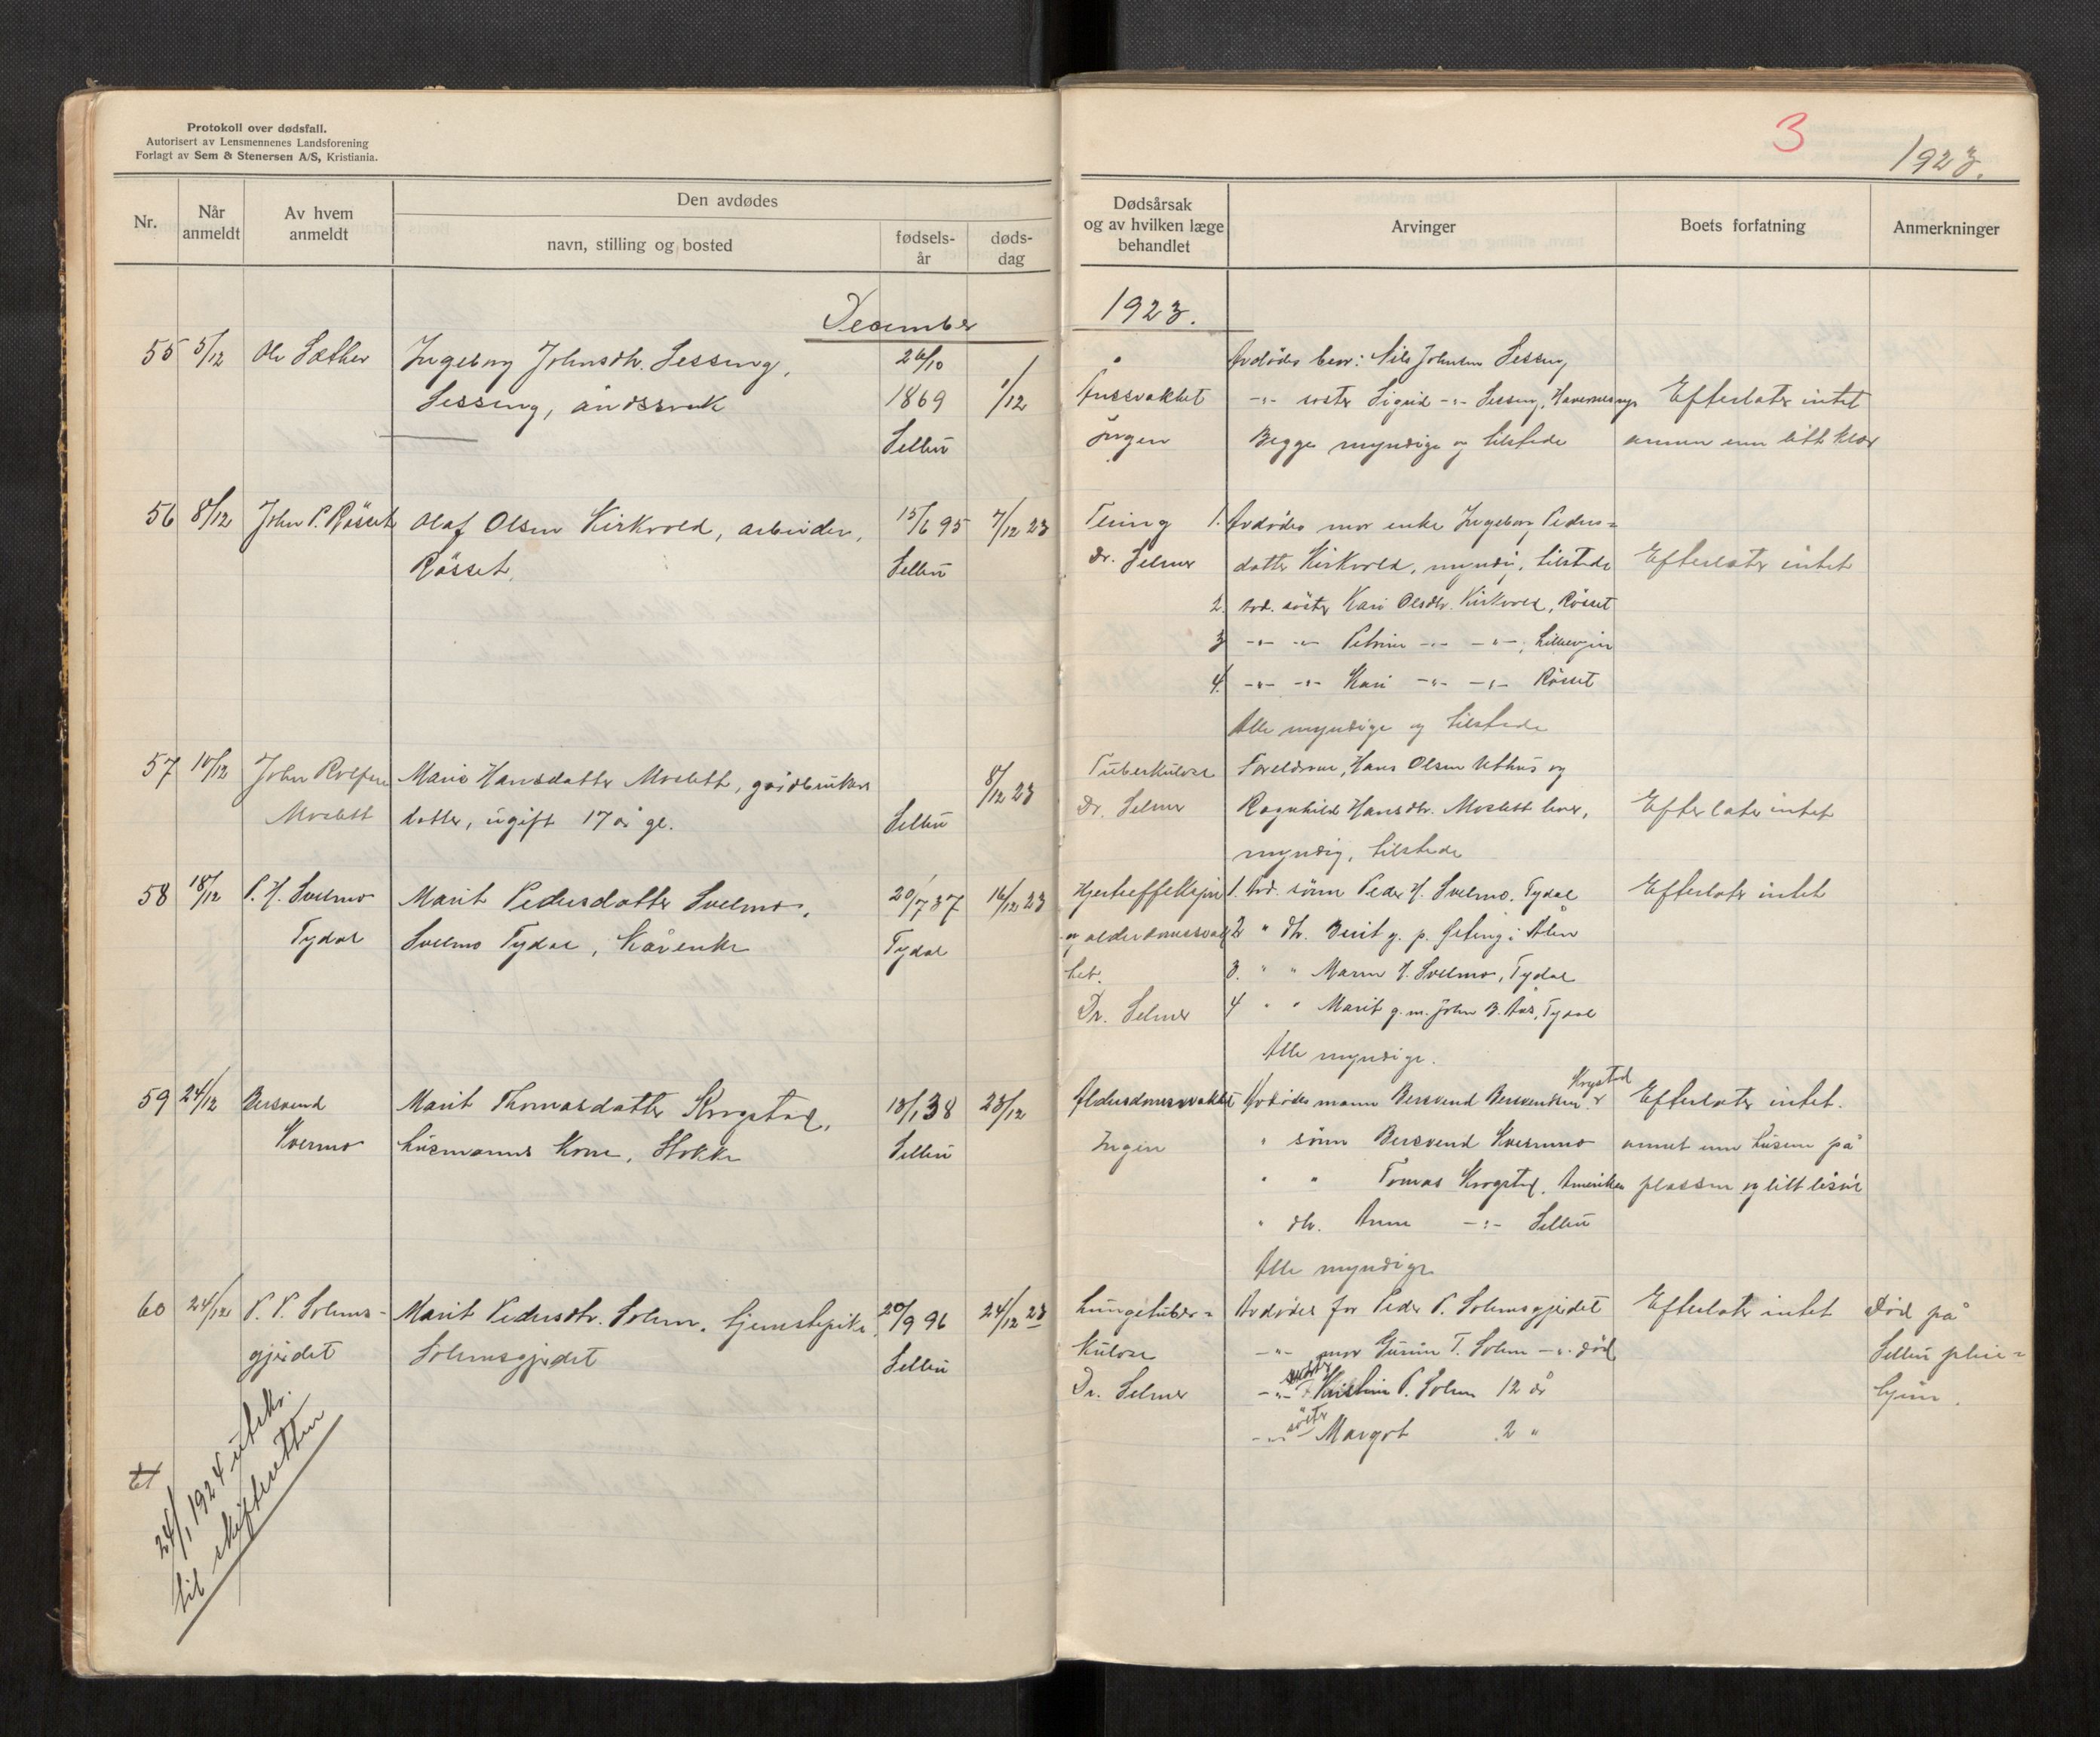 Protokoll over dødsfall.
Autorisert av Lensmennenes Landsforening
Forlagt av Sem & Stenersen A/S, Kristiania.
Nr.
Når anmeldt
Av hvem anmeldt
Den avdødes
navn, stilling og bosted
fødselsår
dødsdag
December
55 5/12 Ole Sæther Ingeborg Johnsdtr. Sessing, 26/10
Sessing, åndssvak 1869 1/12
Selbu
56 8/12 John P. Rösset Olaf Olsen Kirkvold, arbeider, 15/6 95 7/12 23
Rösset. Selbu
57 10/12 John Rolfsen Marie Hansdatter Moslett, gårdbrukers 8/12 23
Moslett datter, ugift 17 år gl. Selbu
58 18/12 P. H. Svelmo Marit Pedersdatter Svelmo, 20/7 37 16/12 23
Tydal Svelmo Tydal, Kårenke Tydal
59 24/12 Bersvend Marit Thomasdatter Krogstad, 13/1 38 23/12
Kvermo husmanns kone, Stokke Selbu
60 24/12 P. P. Solems- Marit Pedersdtr. Solem, tjenestepike, 20/9 96 24/12 23
gjerdet Solemsgjerdet Selbu
24/1 1924 utskr.
til skifteretten
3
1923.
Dødsårsak og av hvilken læge behandlet
Arvinger
Boets forfatning
Anmerkninger
1923.
Avdødes bror: Nils Johnsen Sessing
Åndssvakhet -"- søster Sigrid -"- Sessing, Efterlater intet
Ingen Begge myndige og tilstede annen enn litt klær
Tering 1. Avdødes mor enke Ingeborg Peders=
Dr. Selmer datter Kirkvold, myndig, tilstede Efterlater intet
2. Avd. söster Kari Olsdtr. Kirkvold, Rösset
3 -"- -"- Petrine -"- -"-,
4. -"- -"- Kari -"- -"- Rösset
Alle myndige og tilstede
Tuberkulose Foreldrene, Hans Olsen Uthus og
Dr. Selmer Ragnhild Hansdtr. Moslett lever, Efterlater intet
myndig, tilstede
Hjerteffeksjon 1. Avd. sönn Peder H. Svelmo, Tydal Efterlater intet
og alderdomssvak 2 " dtr. Berit g. p. i Ålen
het. 3. " " Maren H. Svelmo, Tydal
Dr. Selmer 4 " " Marit g. m. John B. Aas, Tydal
Alle myndige.
Alderdomssvakhet Avdødes mann Bersvend Bersvendsen Krogstad Efterlater intet.
Ingen " sönn Bersvend Kvermo annet enn husene på
" " Tomas Krogstad, Amerika plassen og litt lösöre
" dtr. Anne -"- Selbu
Alle myndige
Lungetuber= Avdødes far Peder P. Solemsgjerdet Efterlater intet Död på
kulose -"- mor Guruen T. Solem -"- död Selbu pleie=
Dr. Selmer -"- söster Kristine P. Solem 12 år hjem.
-"- söster Margot 2 "